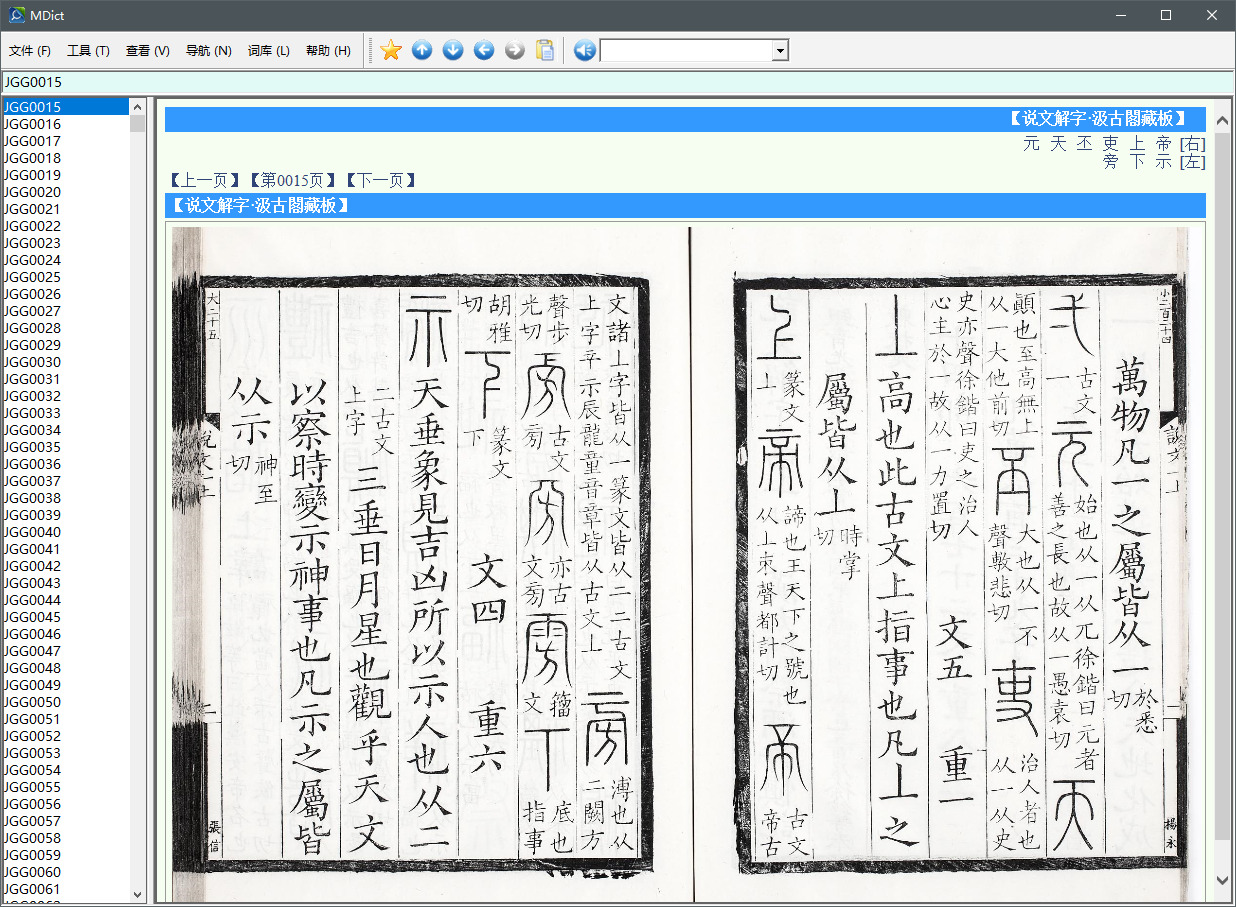 MDict
文件 (F) 工具 (T) 查看 (V) 导航 (N) 词库 (L) 帮助 (H)
JGG0015
JGG0015
JGG0016
JGG0017
JGG0018
JGG0019
JGG0020
JGG0021
JGG0022
JGG0023
JGG0024
JGG0025
JGG0026
JGG0027
JGG0028
JGG0029
JGG0030
JGG0031
JGG0032
JGG0033
JGG0034
JGG0035
JGG0036
JGG0037
JGG0038
JGG0039
JGG0040
JGG0041
JGG0042
JGG0043
JGG0044
JGG0045
JGG0046
JGG0047
JGG0048
JGG0049
JGG0050
JGG0051
JGG0052
JGG0053
JGG0054
JGG0055
JGG0056
JGG0057
JGG0058
JGG0059
JGG0060
JGG0061
【说文解字·汲古閣藏板】
元 天 丕 吏 上 帝 [右]
旁 下 示 [左]
【上一页】【第0015页】【下一页】
【说文解字·汲古閣藏板】
小二百二十四 說文一上 二 楊永
萬物凡一之屬皆从一於悉切
弌古文一元始也从一从兀徐鍇曰元者善之長也故从一愚袁切天
顚也至高無上从一大他前切丕大也从一不聲敷悲切吏治人者也从一从史
史亦聲徐鍇曰吏之治人心主於一故从一力置切 文五 重一
丄高也此古文上指事也凡丄之
屬皆从丄時掌切
上篆文丄帝諦也王天下之號也从丄朿聲都計切帝古文帝古
文諸丄字皆从一篆文皆从二二古文上字䇂示辰龍童音章皆从古文丄旁溥也从二闕方
聲步光切旁古文㫄旁亦古文㫄雱籀文丅底也指事
胡雅切下篆文下 文四 重六
示天垂象見吉凶所以示人也从二
二古文上字三垂日月星也觀乎天文
以察時變示神事也凡示之屬皆
从示神至切
大二十五 說文一上 二 張信